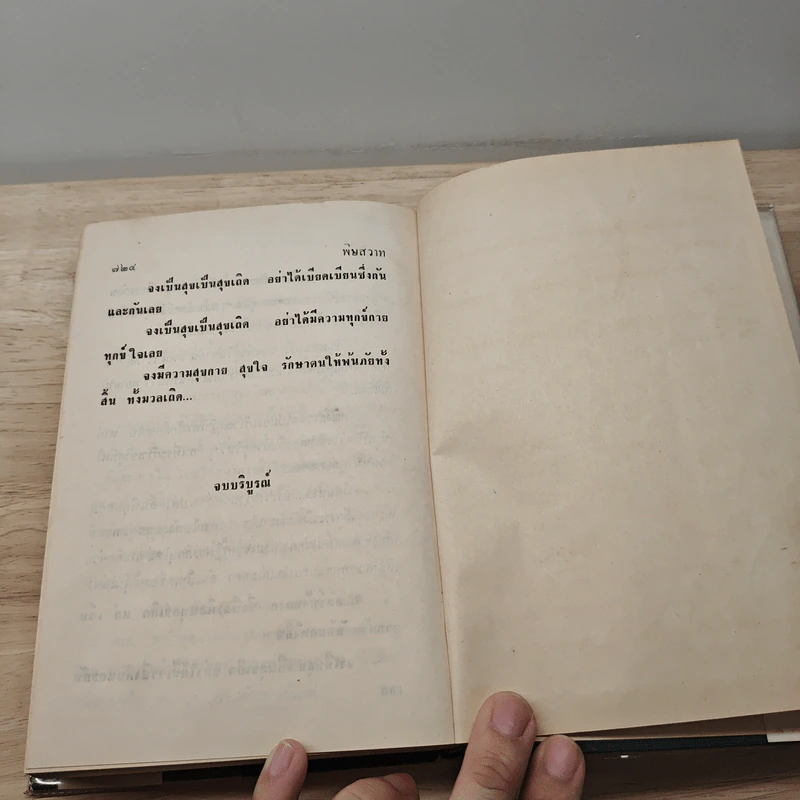 ๗๒๔ พิษสวาท
จงเป็นสุขเป็นสุขเถิด อย่าได้เบียดเบียนซึ่งกัน
และกันเลย
จงเป็นสุขเป็นสุขเถิด อย่าได้มีความทุกข์กาย
ทุกข์ใจเลย
จงมีความสุขกาย สุขใจ รักษาตนให้พ้นภัยทั้ง
สิ้น ทั้งมวลเถิด...
จบบริบูรณ์